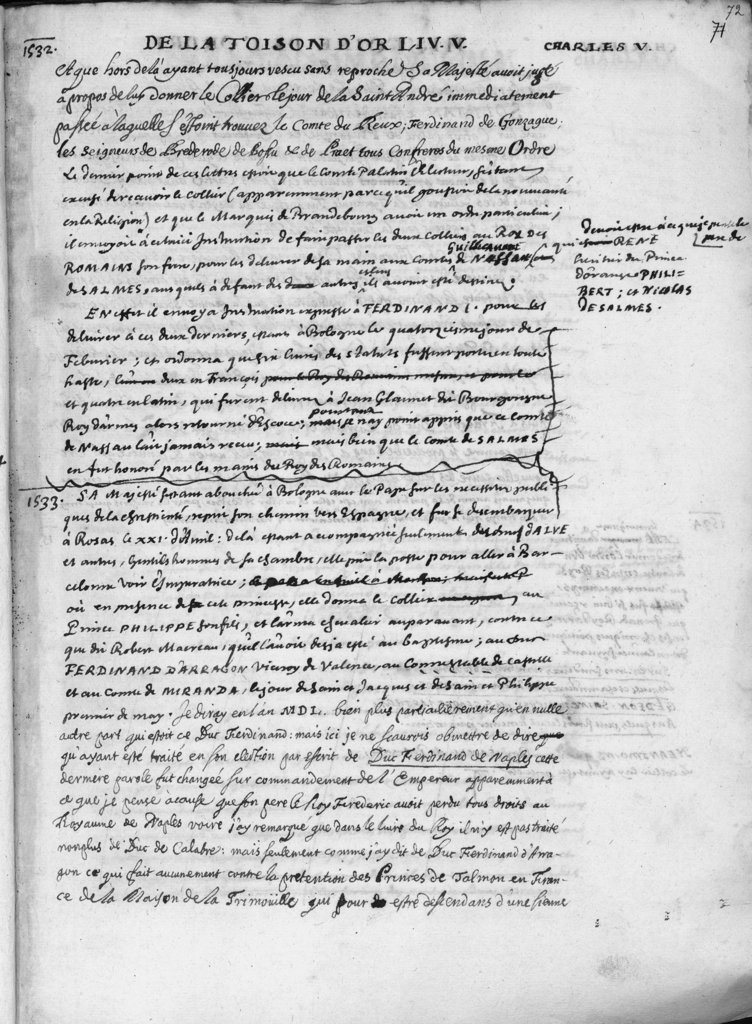 72
71
1532.
DE LA TOISON D'OR LIV. V.
CHARLES V.
Et que hors de là ayant tousjours vescu sans reproche Sa Majesté avoit jugé
à propos de luy donner le Collier le jour de la Saint André immediatement
passée à laquelle s'estoint trouvez le Comte du Reux; Ferdinand de Gonzague;
les Seigneurs de Brederode de Bossu & de Praet tous Confreres du mesme Ordre
Le dernier point de ces lettres estoit que le Comte Palatin Electeur, s'estant
excusé de recevoir le collier (apparemment parce qu'il goustoit de la nouveauté
en la Religion) et que le Marquis de Brandebourg avoit un ordre particulier;
il envoyoit à celuici Instruction de faire passer les deux Colliers au ROI DES
ROMAINS son frere, pour les delivrer de sa main aux Comtes Guillaume de NASSAU
de SALMES, ausquels à defaut des autres ils avoient esté destinez.
qui RENE
heritier du Prince
d'orange PHILI-
BERT; et NICOLAS
DE SALMES.
En effet il envoya Instruction expresse à FERDINAND I. pour les
delivrer à ces deux derniers, estant à Bologne le quatorzieme jour de
Febvrier; et ordonna que six livres des statuts fussent portez en toute
haste, deux en François
et quatre en latin, qui furent delivrez à Jean Glannet dit Bourgongne
Roy d'armes alors retourné d'Escoce; pourtant je n'ay point appris que ce Comte
de Nassau l'ait jamais receu; mais bien que le Comte de SALMES
en fut honoré par les mains du Roy des Romains
1533. SA Majesté s'estant abouchée à Bologne avec le Pape sur les necessitez publi-
ques de la chrestienté, reprit son chemin vers Espagne, et fut se desembarquer
à Rosas le XXI. d'Avril: de là estant accompagnée seulement du Duc d'ALVE
et autres, Gentilshommes de sa chambre, elle prit la poste pour aller à Bar-
celonne voir l'Imperatrice;
où en presence de cete princesse, elle donna le collier au
Prince PHILIPPE son fils, et l'arma chevalier auparavant, contre ce
que dit Robert Macreau, qu'il l'avoit desja esté au baptesme; au Duc
FERDINAND D'ARRAGON Viceroy de Valence, au Connestable de Castille
et au Comte de MIRANDA, le jour de Saint Jacques et de Saint Philippe
premier de may. Je diray en l'an MDL. bien plus particulierement qu'en nulle
autre part qui estoit ce Duc Ferdinand: mais ici je ne sçaurois obmettre de dire
qu'ayant esté traité en son election par escrit de Duc Ferdinand de Naples cette
derniere parole fut changée sur commandement de l'Empereur apparemment à
ce que je pense a cause que son pere le Roy Frederic avoit perdu tous droits au
Royaume de Naples voire j'ay remarqué que dans le livre du Roy il n'y est pas traité
nonplus de Duc de Calabre: mais seulement comme j'ay dit de Duc Ferdinand d'Arra-
gon ce qui fait aucunement contre la pretention des Princes de Talmon en Fran-
ce de la Maison de la Trimoüille qui pour estre descendans d'une sienne